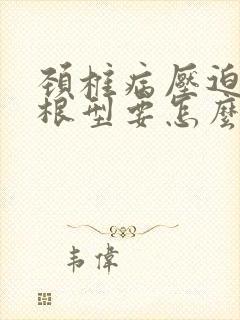 頚椎病壓迫
根型要怎麼
韦偉